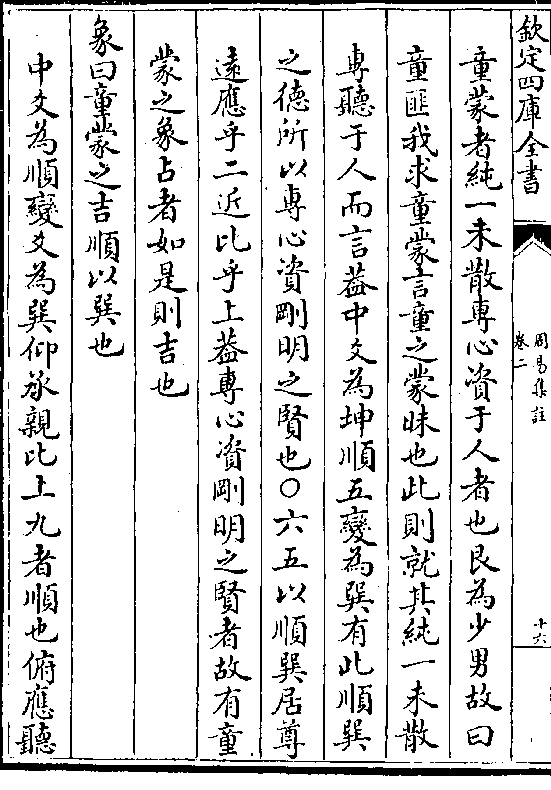 欽定四庫全書
周易集註
卷二
十六
童蒙者純一未散專心資于人者也艮為少男故曰
童匪我求童蒙言童之蒙昧也此則就其純一未散
專聽于人而言葢中爻為坤順五變為巽有此順巽
之德所以專心資剛明之賢也○六五以順巽居尊
遠應乎二近比乎上葢專心資剛明之賢者故有童
蒙之象占者如是則吉也
象曰童蒙之吉順以巽也
中爻為順變爻為巽仰承親比上九者順也俯應聽